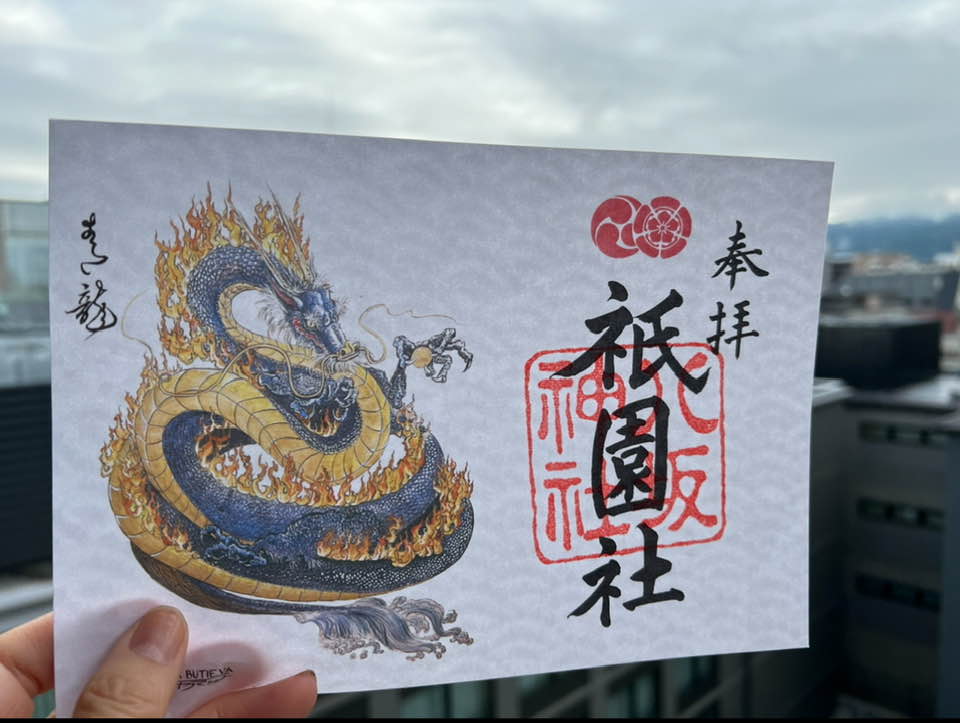 奉拝
祇園社
八坂
神社
青龍
BUTIEVA